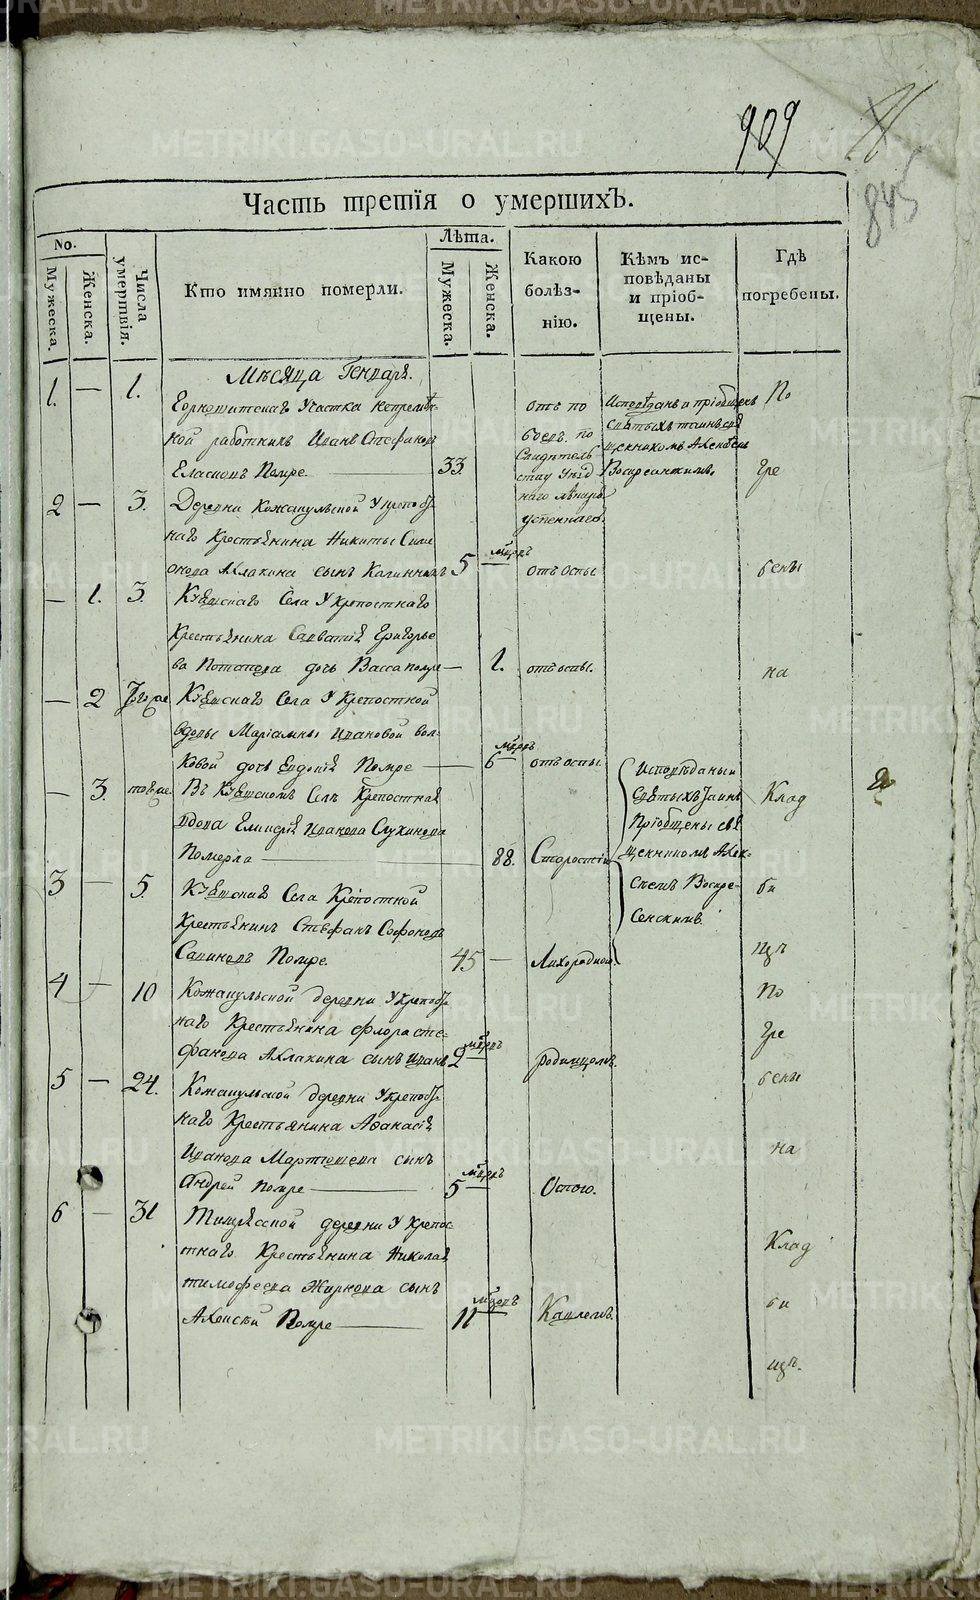 909
845
Часть третїя о умершихъ.
No.
Мужеска.
Женска.
Числа умертвїя.
Кто имянно померли.
Лѣта.
Мужеска.
Женска.
Какою
болѣз-
нію.
Кѣмъ ис-
повѣданы
и прїоб-
щены.
Гдѣ
погребены.
Мѣсяца Генваря.
1. — 1.
Участка непремѣн-
ной работникъ Иванъ Стефановъ
Помре. 33
отъ по
боевъ по
Свидѣтель
ству
Исповѣданъ и прїобщенъ
Святыхъ таинъ свя
щенникомъ
Воскресенскимъ.
По
гре
2 — 3. Деревни Кожакульской Укрепост
наго Крестьянина Никиты Сим
онова Ахлакина сынъ Калинникъ 5 мцовъ
отъ оспы
бены
— 1. 3. Села Укрепостнаго
Крестьянина Савватїя Григорье
ва Потапова дочь Васса помре — 1. отъ оспы.
на
— 2 Села Укрепостной
вдовы Марїамны Ивановой вол-
ковой дочь Евдокїя Помре — 6 мцовъ отъ оспы.
— 3. Селѣ Крепостная
вдова Иванова Сухинова
Померла — 88. Старостїю
Исповѣданы и
Святыхъ Таинъ
Прїобщены свя
щенникомъ Алек-
сѣемъ Воскре-
сенскимъ.
Клад
би
щѣ
3 — 5. Села Крепостной
Крестьянинъ Стефанъ Софоновъ
Савиновъ Помре. 45 — Лихорадкой.
4 — 10 Кожакульской деревни Укрепост
наго Крестьянина Флора Сте-
фанова Ахлакина сынъ Иванъ 2 мцовъ родимцомъ.
По
гре
бены
5 — 24. Кожакульской деревни Укрепост
наго Крестьянина Афанасїя
Иванова Мартюшева сынъ
Андрей Помре — 5 мцовъ Оспою.
на
6 — 31 деревни Укрепос
тнаго Крестьянина Николая
тимофеева Жиркова сынъ
Алексѣй Помре — 11 мцовъ Кашлемъ.
Клад
би
щѣ.
METRIKI.GASO-URAL.RU